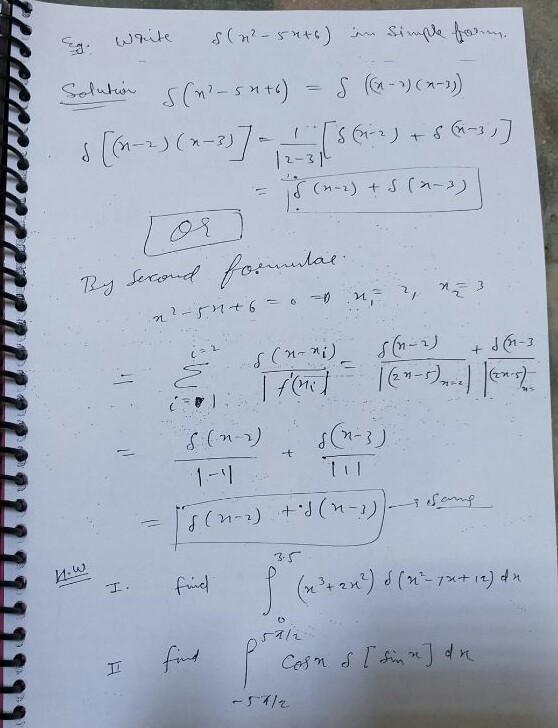 Eg. Write δ(x² - 5x+6) in simple form.
Solution δ(x² - 5x+6) = δ((x-2)(x-3))
δ[(x-2)(x-3)] = 1/|2-3| [δ(x-2) + δ(x-3)]
= δ(x-2) + δ(x-3)
OR
By Second formulae.
x² - 5x+6 = 0 ⇒ x₁ = 2, x₂ = 3
= Σ_{i=1}^{i=2} δ(x-xᵢ)/|f'(xᵢ)| = δ(x-2)/|(2x-5)ₓ₌₂| + δ(x-3/|(2x-5)ₓ₌
= δ(x-2)/|-1| + δ(x-3)/|1|
= δ(x-2) + δ(x-3) → same
H.W
I. find ∫₀^{3.5} (x³+2x²) δ(x²-7x+12) dx
II find ∫_{-5π/2}^{5π/2} Cosx δ[Sinx] dx